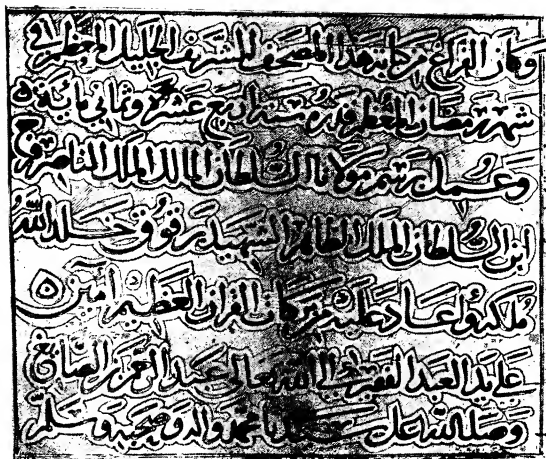 وكان الفراغ من كتابة هذا المصحف الشريف الجليل المعظم في
شهر رمضان المعظم قدره سنة اربع عشر وثماني مائة
وعمل برسم مولانا السلطان المالك الملك الناصر فرج
ابن السلطان الملك الظاهر الشهيد برقوق خلد الله
ملكه واعاد عليه من بركات القران العظيم امين
على يد العبد الفقير الى الله تعالى عبد الرحمن بن الصايغ
وصلى الله على سيدنا محمد واله وصحبه وسلم